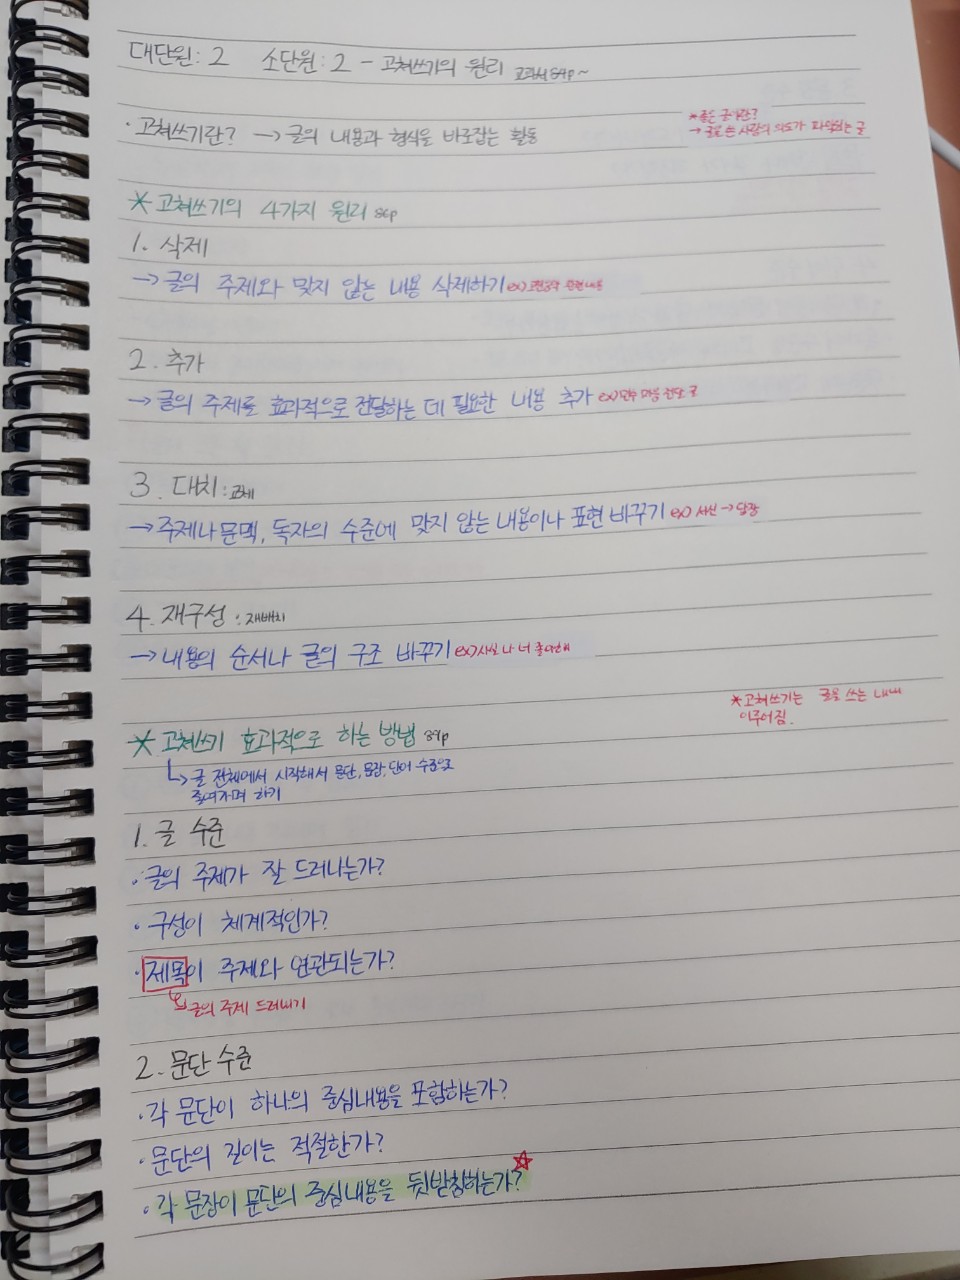 대단원: 2 소단원: 2 - 고쳐쓰기의 원리 교과서 84p~
· 고쳐쓰기란? → 글의 내용과 형식을 바로잡는 활동
* 좋은 글이란?
→ 글 쓰는 사람의 의도가 파악되는 글
* 고쳐쓰기의 4가지 원리 86p
1. 삭제
→ 글의 주제와 맞지 않는 내용 삭제하기 ex) 관련 내용
2. 추가
→ 글의 주제를 효과적으로 전달하는 데 필요한 내용 추가 ex) 마음 전달 글
3. 대치 : 교체
→ 주제나 문맥, 독자의 수준에 맞지 않는 내용이나 표현 바꾸기 ex) 서신 → 답장
4. 재구성 : 재배치
→ 내용의 순서나 글의 구조 바꾸기 ex) 사실 나 너 좋아해
* 고쳐쓰기는 글을 쓰는 내내
이루어짐.
* 고쳐쓰기 효과적으로 하는 방법 89p
↳ 글 전체에서 시작해서 문단, 문장, 단어 수준으로
줄여가며 하기
1. 글 수준
· 글의 주제가 잘 드러나는가?
· 구성이 체계적인가?
· 제목이 주제와 연관되는가?
↳ 글의 주제 드러내기
2. 문단 수준
· 각 문단이 하나의 중심내용을 포함하는가?
· 문단의 길이는 적절한가?
· 각 문장이 문단의 중심내용을 뒷받침하는가? ☆